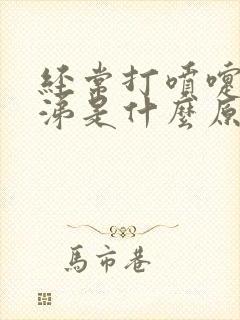 經常打噴嚏
涕是什麼原
馬市巷